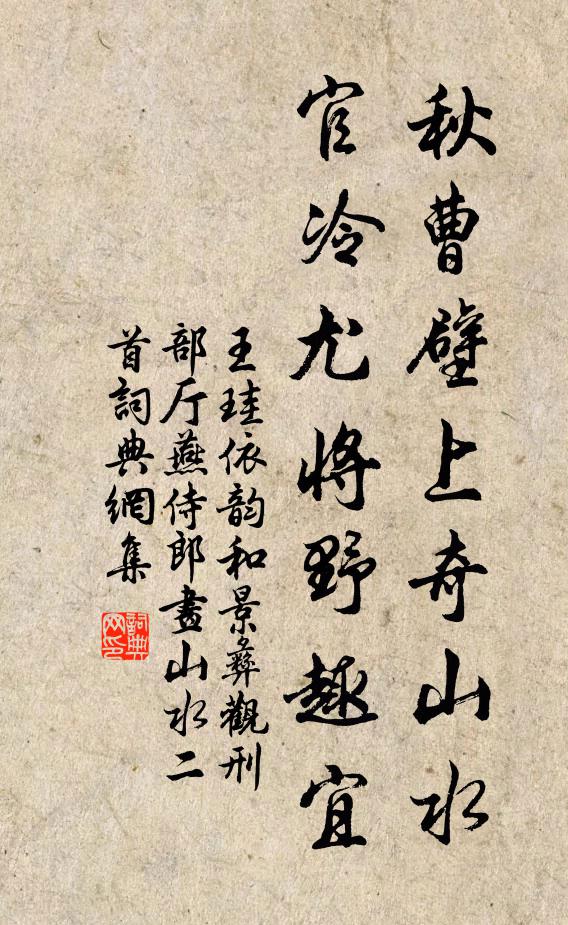 秋曹壁上奇山水
官冷尤將野趣宜
王珪依韵和景彝觀刑
部厅燕侍郎畫山水二
首詞典網集
詞典
网印